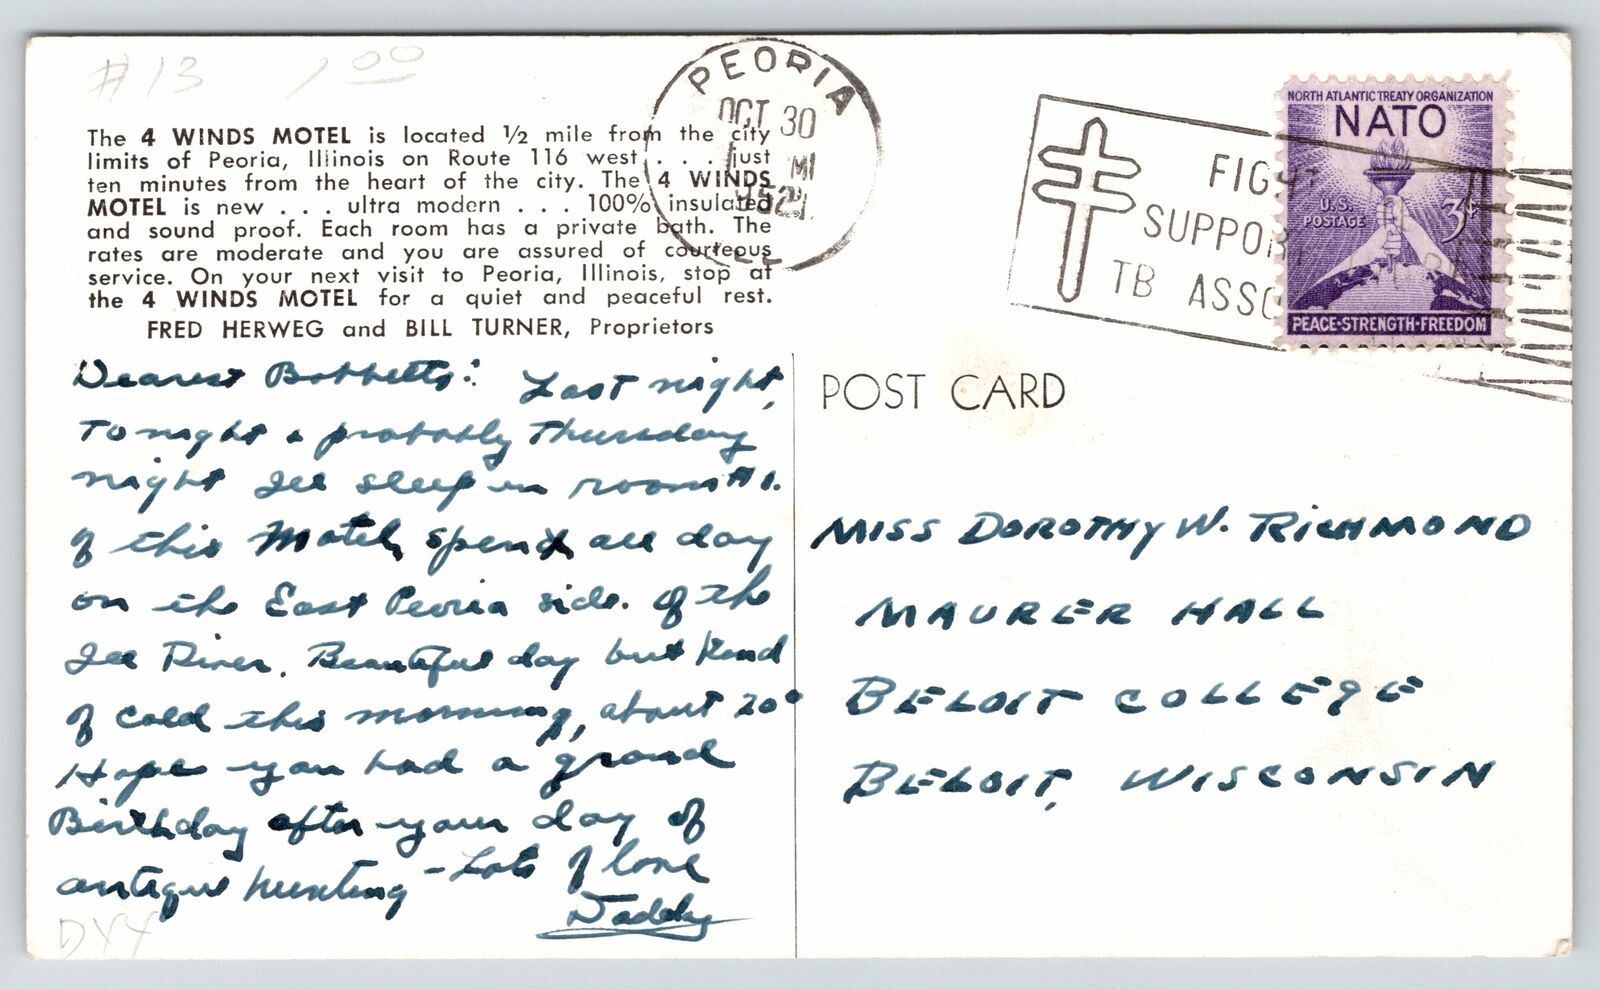 #13 1.00
The 4 WINDS MOTEL is located ½ mile from the city
limits of Peoria, Illinois on Route 116 west . . . just
ten minutes from the heart of the city. The 4 WINDS
MOTEL is new . . . ultra modern . . . 100% insulated
and sound proof. Each room has a private bath. The
rates are moderate and you are assured of courteous
service. On your next visit to Peoria, Illinois, stop at
the 4 WINDS MOTEL for a quiet and peaceful rest.
FRED HERWEG and BILL TURNER, Proprietors
PEORIA
OCT 30
1952
FIGHT
SUPPORT
TB ASSO
NORTH ATLANTIC TREATY ORGANIZATION
NATO
U.S.
POSTAGE
3¢
PEACE·STRENGTH·FREEDOM
POST CARD
Dearest Bobbetts: Last night,
Tonight & probably Thursday
night Ill sleep in room #1.
of this Motel, spend all day
on the East Peoria side. of the
Ill River. Beautiful day but kind
of cold this morning, about 20°
Hope you had a grand
Birthday after your day of
antique hunting - Lots of love
Daddy
MISS DOROTHY W. RICHMOND
MAURER HALL
BELOIT COLLEGE
BELOIT, WISCONSIN